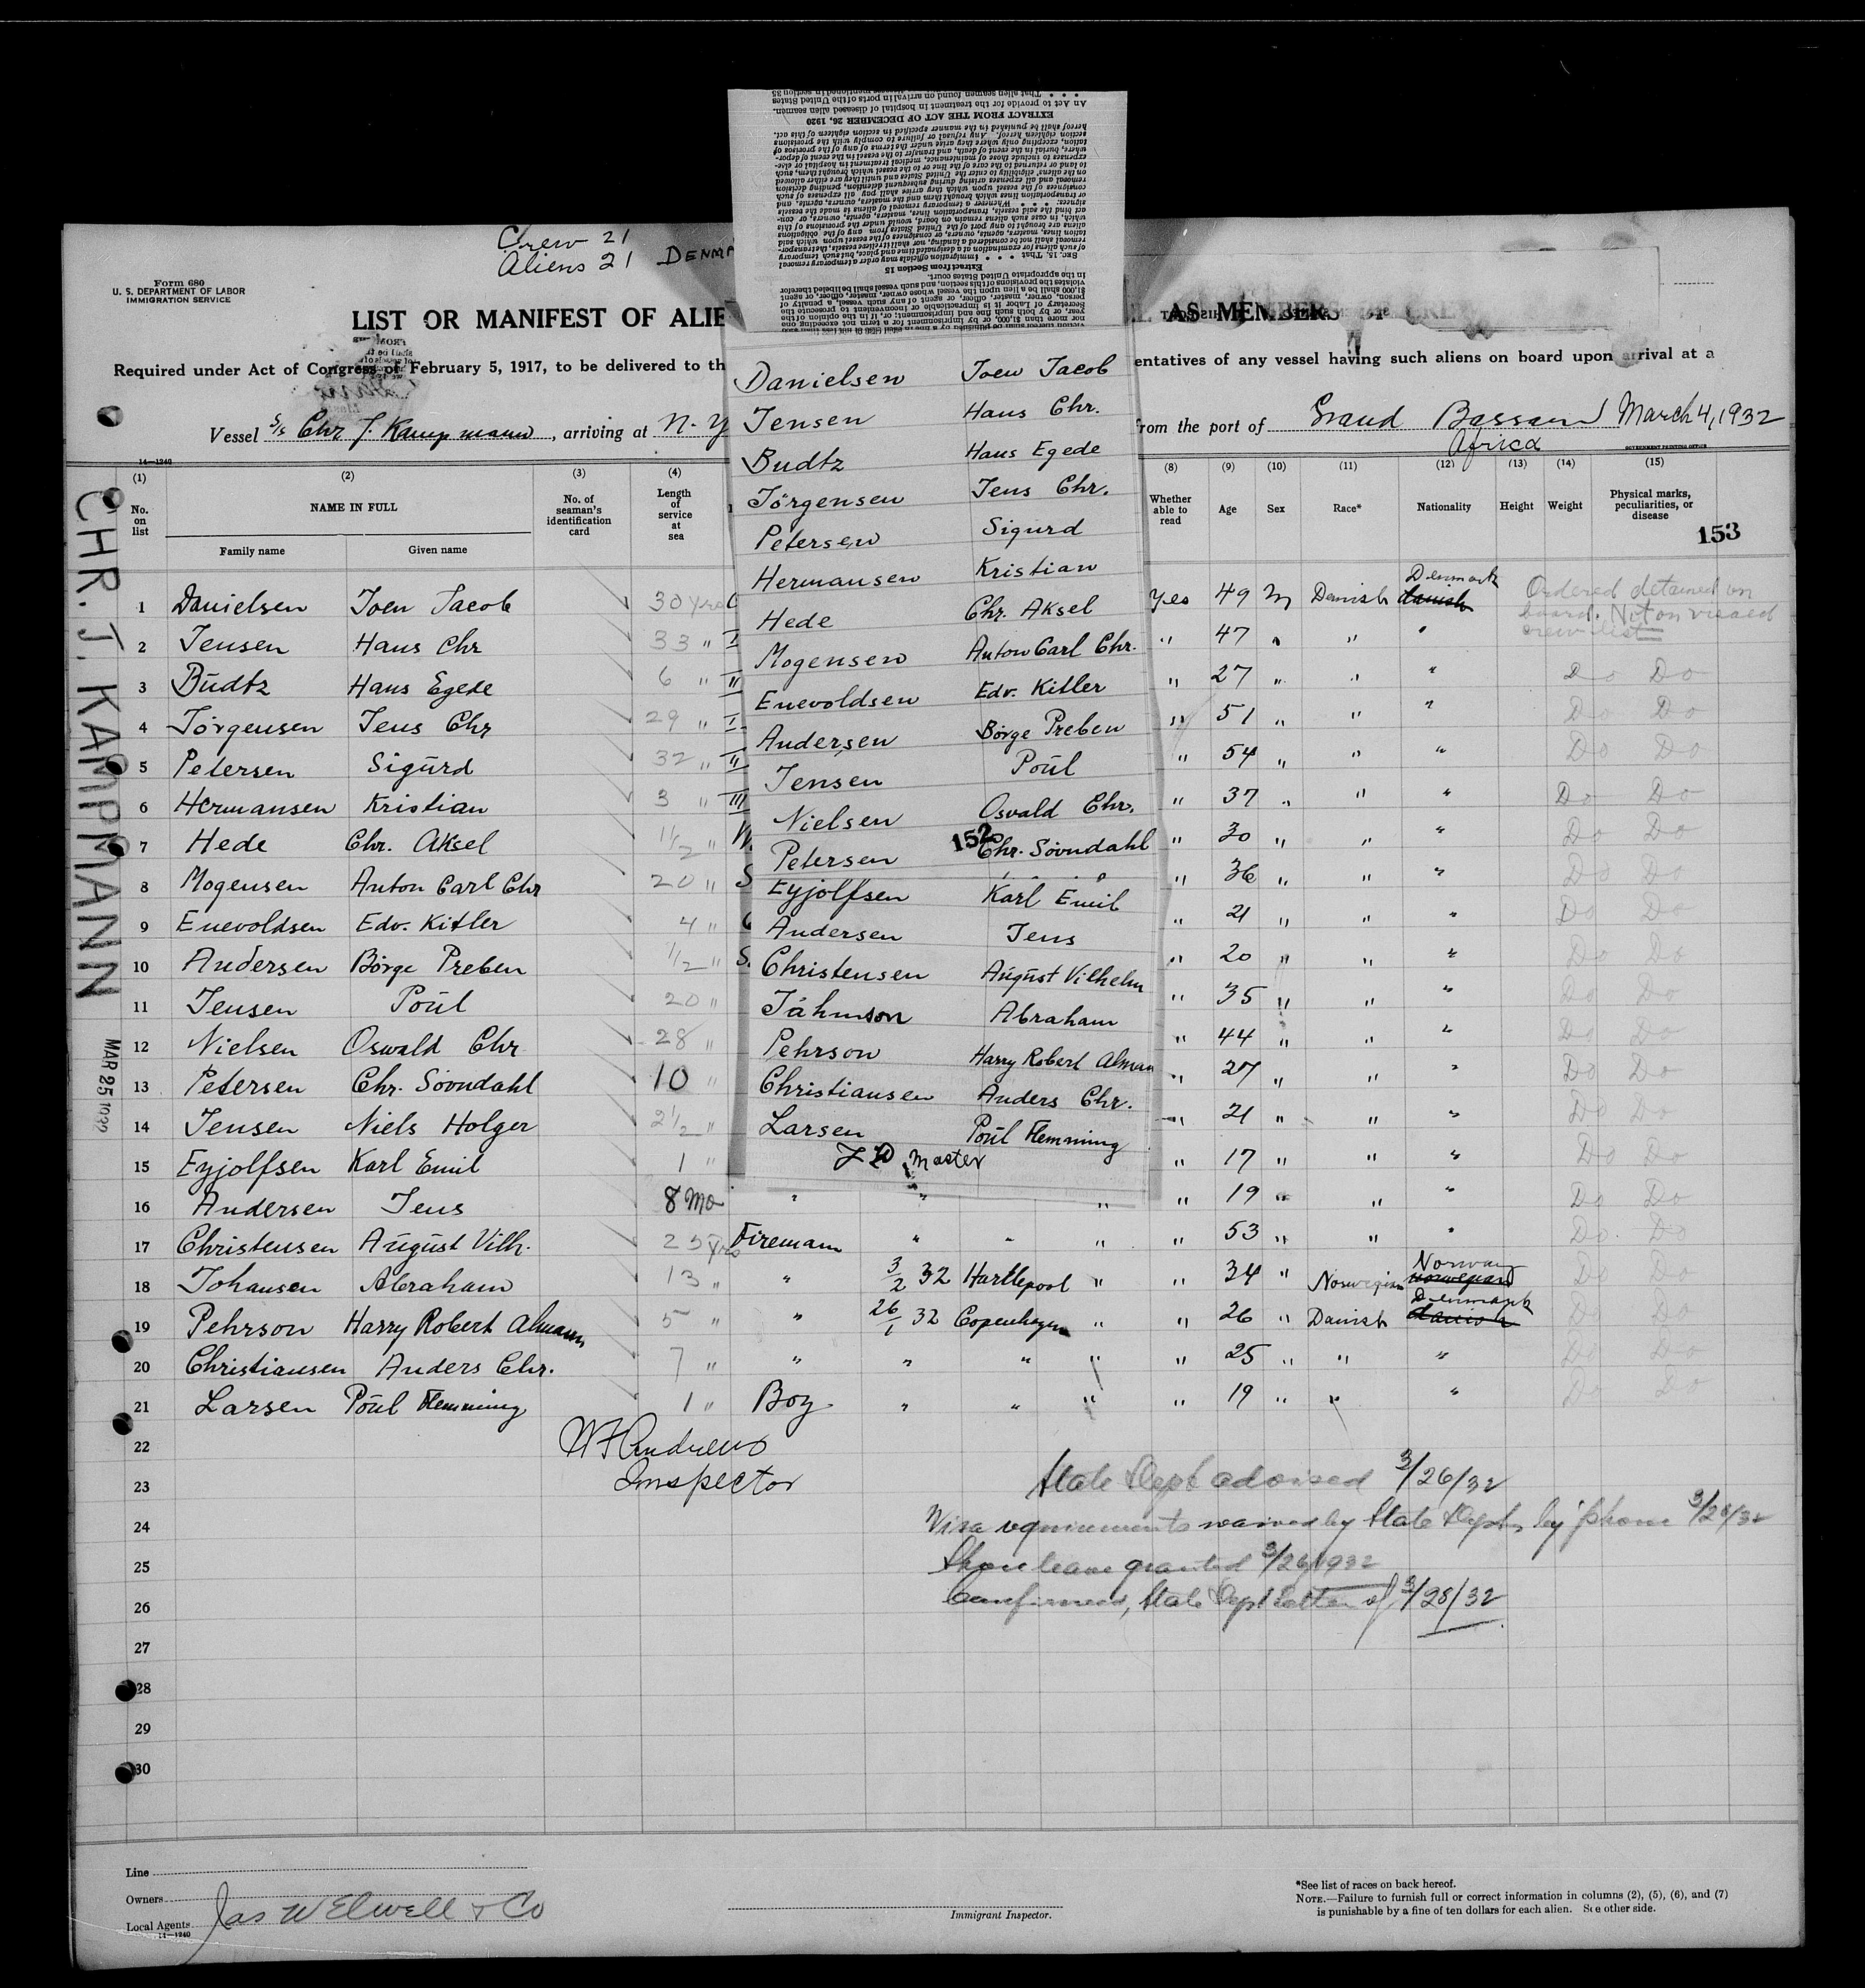 Crew 21
Aliens 21 DENM
Form 680
U. S. DEPARTMENT OF LABOR
IMMIGRATION SERVICE
LIST OR MANIFEST OF ALIE
AS MEMBERS
Required under Act of Congress of February 5, 1917, to be delivered to th
entatives of any vessel having such aliens on board upon arrival at a
Vessel S/s Chr J. Kampmann, arriving at N.Y
rom the port of Grand Bassam March 4, 1932
Africa
14—1240
GOVERNMENT PRINTING OFFICE
An Act to provide for the treatment in hospital of diseased alien seamen.
EXTRACT FROM THE ACT OF DECEMBER 26, 1920
Extract from Section 15
Danielsen Joen Jacob
Jensen Hans Chr.
Budtz Hans Egede
Jörgensen Jens Chr.
Petersen Sigurd
Hermansen Kristian
Hede Chr. Aksel
Mogensen Anton Carl Chr.
Enevoldsen Edv. Kitler
Andersen Börge Preben
Jensen Poul
Nielsen Osvald Chr.
152
Petersen Chr. Sövndahl
Eyjolfsen Karl Emil
Andersen Jens
Christensen August Vilhelm
Abraham
Pehrson Harry Robert Alman
Christiansen Anders Chr.
Larsen Poul Flemming
Master
(1) (2) (3) (4) (8) (9) (10) (11) (12) (13) (14) (15)
No. on list
NAME IN FULL
Family name Given name
No. of seaman's identification card
Length of service at sea
Whether able to read
Age Sex Race* Nationality Height Weight
Physical marks, peculiarities, or disease
153
CHR. J. KAMPMANN
MAR 25 1932
1 Danielsen Joen Jacob 30 yrs C Yes 49 M Danish Denmark Ordered detained on
board. Not on visaed
crew list
2 Jensen Hans Chr 33 " I " 47 " " "
3 Budtz Hans Egede 6 " II " 27 " " " Do Do
4 Jörgensen Jens Chr 29 " I " 51 " " " Do Do
5 Petersen Sigurd 32 " II " 54 " " " Do Do
6 Hermansen Kristian 3 " III " 37 " " " Do Do
7 Hede Chr. Aksel 1 1/2 " " 30 " " " Do Do
8 Mogensen Anton Carl Chr 20 " S " 36 " " " Do Do
9 Enevoldsen Edv. Kitler 4 " " 21 " " " Do Do
10 Andersen Börge Preben 1/2 " S. " 20 " " " Do Do
11 Jensen Poul 20 " " 35 " " " Do Do
12 Nielsen Oswald Chr 28 " " 44 " " " Do Do
13 Petersen Chr. Sövndahl 10 " " 27 " " " Do Do
14 Jensen Niels Holger 2 1/2 " " 21 " " " Do Do
15 Eyjolfsen Karl Emil 1 " " 17 " " " Do Do
16 Andersen Jens 8 Mo " " " " 19 " " " Do Do
17 Christensen August Vilh. 25 yrs Fireman " " " " 53 " " " Do Do
18 Johansen Abraham 13 " " 3/2 32 Hartlepool " " 34 " Norwegian Norway Do Do
19 Pehrson Harry Robert Almann 5 " " 26/1 32 Copenhagen " " 26 " Danish Denmark Do Do
20 Christiansen Anders Chr. 7 " " " " " " 25 " " " Do Do
21 Larsen Poul Flemming 1 " Boy " " " " 19 " " " Do Do
22
W F Andrews
23
Inspector
State Dept advised 3/26/32
24
Visa requirements waived by State Dept, by phone 3/26/32
25
Shore leave granted 3/26/1932
26
Confirmed, State Dept letter of 3/28/32
27
28
29
30
Line
Owners
Local Agents Jas W Elwell & Co
14—1240
Immigrant Inspector.
*See list of races on back hereof.
NOTE.—Failure to furnish full or correct information in columns (2), (5), (6), and (7)
is punishable by a fine of ten dollars for each alien. See other side.